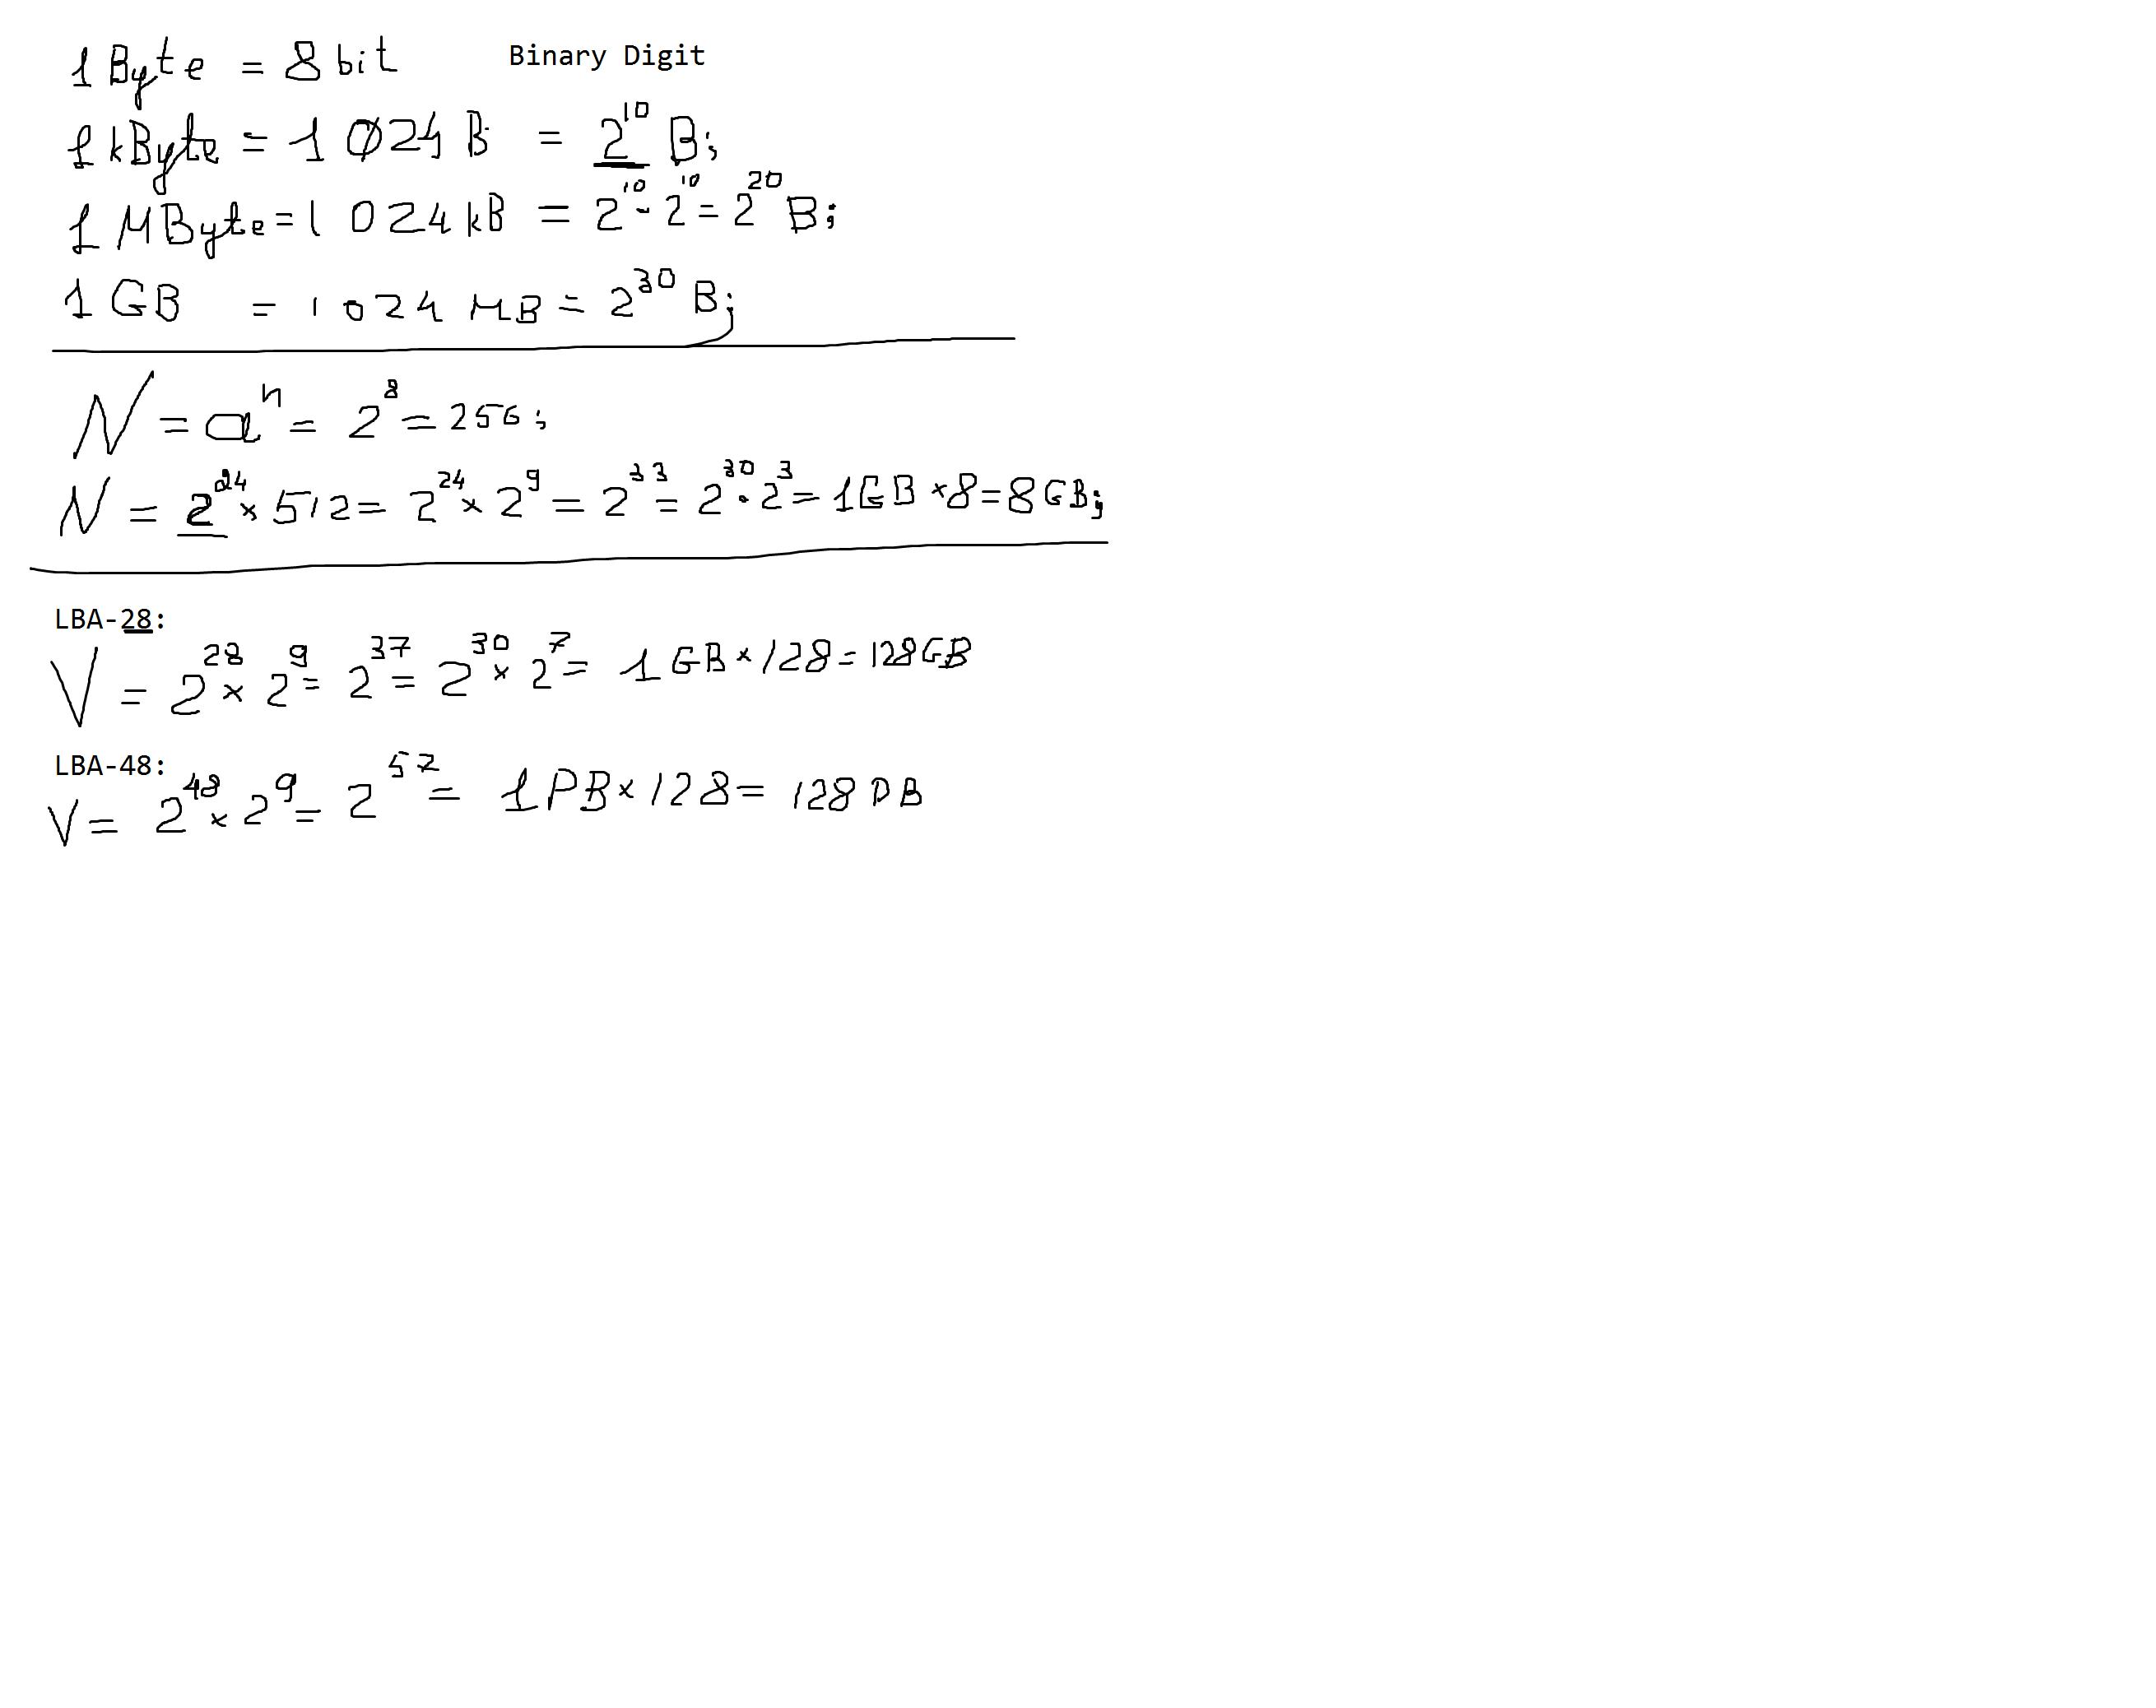 1 Byte = 8 bit Binary Digit
1 kByte = 1 024 B = 2¹⁰ B;
1 MByte = 1 024 kB = 2¹⁰ · 2¹⁰ = 2²⁰ B;
1 GB = 1 024 MB = 2³⁰ B;
N = aⁿ = 2⁸ = 256;
N = 2²⁴ × 512 = 2²⁴ × 2⁹ = 2³³ = 2³⁰ · 2³ = 1GB × 8 = 8 GB;
LBA-28:
V = 2²⁸ × 2⁹ = 2³⁷ = 2³⁰ × 2⁷ = 1 GB × 128 = 128 GB
LBA-48:
V = 2⁴⁸ × 2⁹ = 2⁵⁷ = 1 PB × 128 = 128 PB